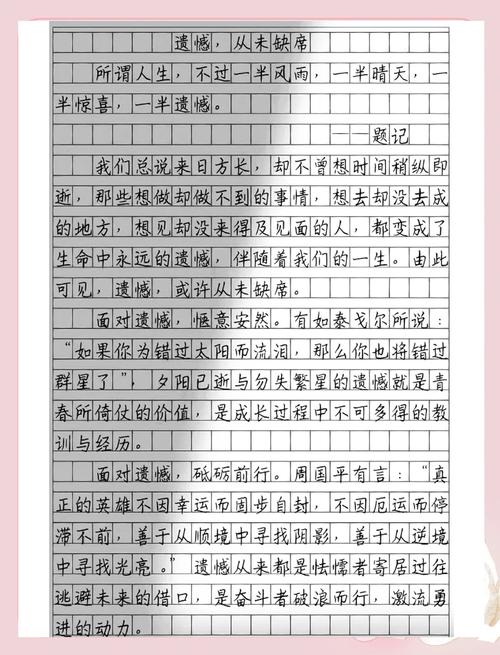 遗憾，从未缺席
所谓人生，不过一半风雨，一半晴天，一
半惊喜，一半遗憾。
——题记
我们总说来日方长，却不曾想时间稍纵即
逝，那些想做却做不到的事情，想去却没去成
的地方，想见却没来得及见面的人，都变成了
生命中永远的遗憾，伴随着我们的一生。由此
可见，遗憾，或许从未缺席。
面对遗憾，惬意安然。有如泰戈尔所说：
“如果你为错过太阳而流泪，那么你也将错过
群星了”，夕阳已逝与勿失繁星的遗憾就是青
春所倚仗的价值，是成长过程中不可多得的教
训与经历。
面对遗憾，砥砺前行。周国平有言：“真
正的英雄不因幸运而固步自封，不因厄运而停
滞不前，善于从顺境中寻找阴影，善于从逆境
中寻找光亮。”遗憾从来都是怯懦者寄居过往
逃避未来的借口，是奋斗者破浪而行，激流勇
进的动力。